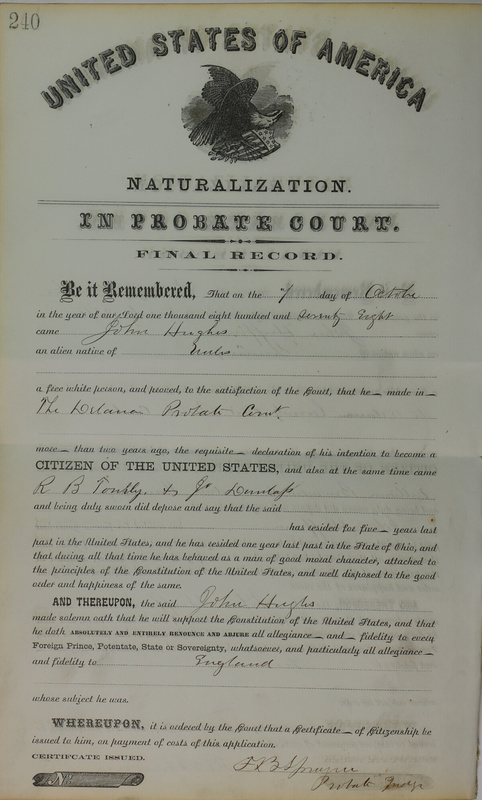 240
UNITED STATES OF AMERICA
NATURALIZATION.
IN PROBATE COURT.
FINAL RECORD.
Be it Remembered, That on the 7 day of Octobe
in the year of our Lord one thousand eight hundred and Seventy Eight
came John Hughes
an alien native of
a free white person, and proved, to the satisfaction of the Court, that he made in
The Probate Court.
more than two years ago, the requisite declaration of his intention to become a
CITIZEN OF THE UNITED STATES, and also at the same time came
R B & Jos Dunlap
and being duly sworn did depose and say that the said
has resided for five years last
past in the United States, and he has resided one year last past in the State of Ohio, and
that during all that time he has behaved as a man of good moral character, attached to
the principles of the Constitution of the United States, and well disposed to the good
order and happiness of the same.
AND THEREUPON, the said John Hughs
made solemn oath that he will support the Constitution of the United States, and that
he doth ABSOLUTELY AND ENTIRELY RENOUNCE AND ABJURE all allegiance and fidelity to every
Foreign Prince, Potentate, State or Sovereignty, whatsoever, and particularly all allegiance
and fidelity to England
whose subject he was.
WHEREUPON, it is ordered by the Court that a Certificate of Citizenship be
issued to him, on payment of costs of this application.
CERTIFICATE ISSUED.
Probate Judge